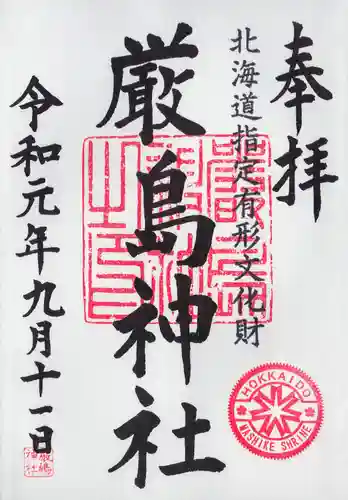 奉拝
北海道指定有形文化財
厳島神社
令和元年九月十一日
HOKKAIDO
MASHIKE SHRINE